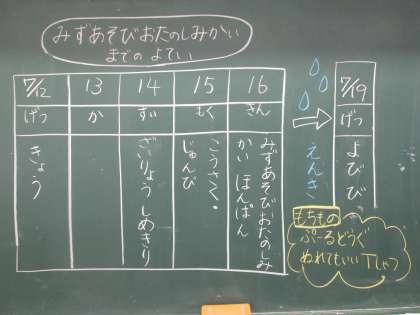 みずあそびおたのしみかい
までのよてい
7/12 13 14 15 16
げつ か すい もく きん
きょう
ざいりょうしめきり
こうさく・
じゅんび
みずあそびおたのしみ
かい ほんばん
えんき
7/19
げつ
よびび
もちもの
ぷーるどうぐ
ぬれてもいいTしゃつ